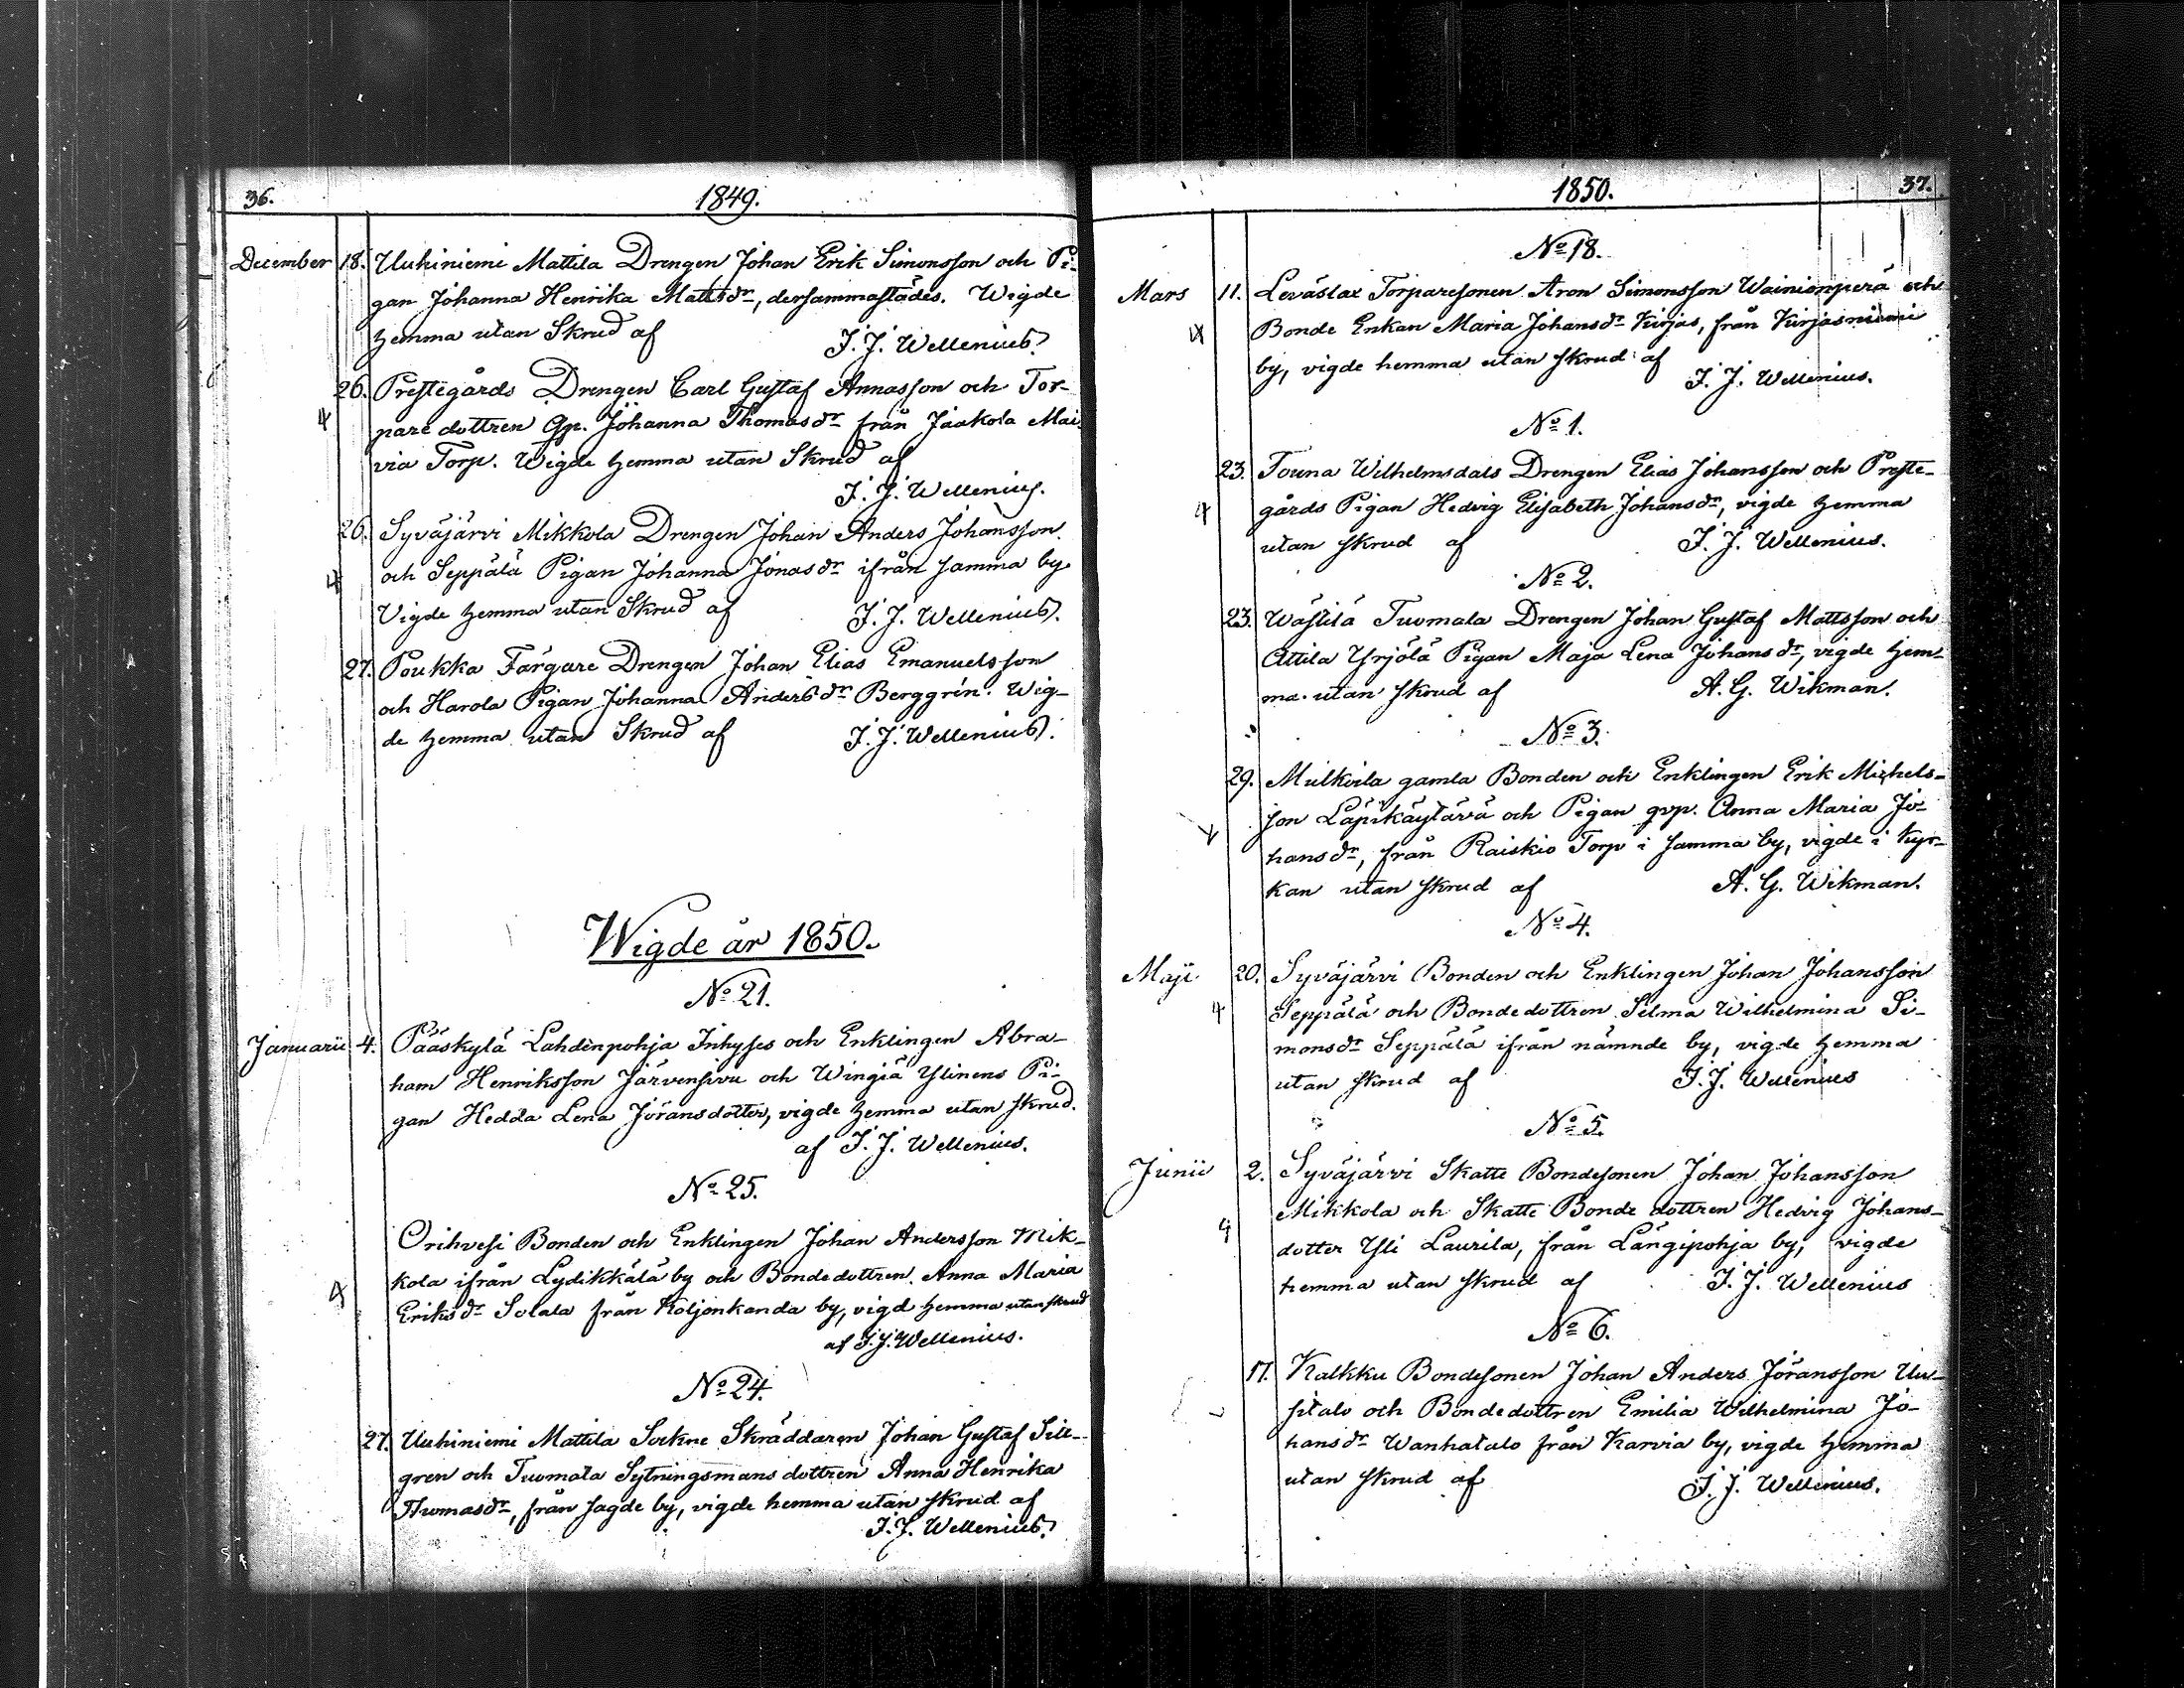 36.
1849.
December 18. Uuhiniemi Mattila Drengen Johan Erik Simonsson och Pi-
gan Johanna Henrika Mattsdr, dersammastädes. Wigde
hemma utan Skrud af J. J. Wellenius.
26. Prestegårds Drengen Carl Gustaf Annasson och Tor-
pare dottren Qp. Johanna Thomasdr från Jaakola Mai-
via Torp. Wigde hemma utan Skrud af
J. J. Wellenius.
26. Syväjärvi Mikkola Drengen Johan Anders Johansson
och Seppälä Pigan Johanna Jonasdr ifrån samma by.
Vigde hemma utan Skrud af J. J. Wellenius.
27. Poukka Färgare Drengen Johan Elias Emanuelsson
och Harola Pigan Johanna Andersdr Berggrén. Wig-
de hemma utan Skrud af J. J. Wellenius.
Wigde år 1850.
No 21.
Januarii 4. Pääskylä Lahdenpohja Inhyses och Enklingen Abra-
ham Henriksson Järvensivu och Wingiä Ylinens Pi-
gan Hedda Lena Jöransdotter, vigde hemma utan skrud.
af J. J. Wellenius.
No 25.
Orihvesi Bonden och Enklingen Johan Andersson Mik-
kola ifrån Lydikkälä by och Bondedottren Anna Maria
Eriksdr Solala från Koljonkanda by, vigd hemma utan skrud
af J. J. Wellenius.
No 24.
27. Uuhiniemi Mattila Sockne Skräddaren Johan Gustaf Sill-
gren och Tuomala Sytningsmans dottren Anna Henrika
Thomasdr, från sagde by, vigde hemma utan skrud af
J. J. Wellenius.
1850.
37.
No 18.
Mars 11. Leväslax Torparesonen Aron Simonsson Wainionperä och
Bonde Enkan Maria Johansdr Kirjas, från Kirjasniemi
by, vigde hemma utan skrud af
J. J. Wellenius.
No 1.
23. Touna Wilhelmsdals Drengen Elias Johansson och Preste-
gårds Pigan Hedvig Elisabeth Johansdr, vigde hemma
utan skrud af J. J. Wellenius.
No 2.
23. Wästilä Tuomala Drengen Johan Gustaf Mattsson och
Attila Yrjölä Pigan Maja Lena Johansdr, vigde hem-
ma utan skrud af A. G. Wikman.
No 3.
29. Mulkoila gamla Bonden och Enklingen Erik Michels-
son Läpikäytävä och Pigan qvp. Anna Maria Jo-
hansdr, från Raiskio Torp i samma by, vigde i Kyr-
kan utan skrud af A. G. Wikman.
No 4.
Maji 20. Syväjärvi Bonden och Enklingen Johan Johansson
Seppälä och Bondedottren Selma Wilhelmina Si-
monsdr Seppälä ifrån nämnde by, vigde hemma
utan skrud af J. J. Wellenius
No 5.
Junii 2. Syväjärvi Skatte Bondesonen Johan Johansson
Mikkola och Skatte Bonde dottren Hedvig Johans-
dotter Yli Laurila, från Längipohja by, vigde
hemma utan skrud af J. J. Wellenius
No 6.
17. Kalkku Bondesonen Johan Anders Jöransson Uu-
sitalo och Bondedottren Emilia Wilhelmina Jo-
hansdr Wanhatalo från Karvia by, vigde hemma
utan skrud af J. J. Wellenius.